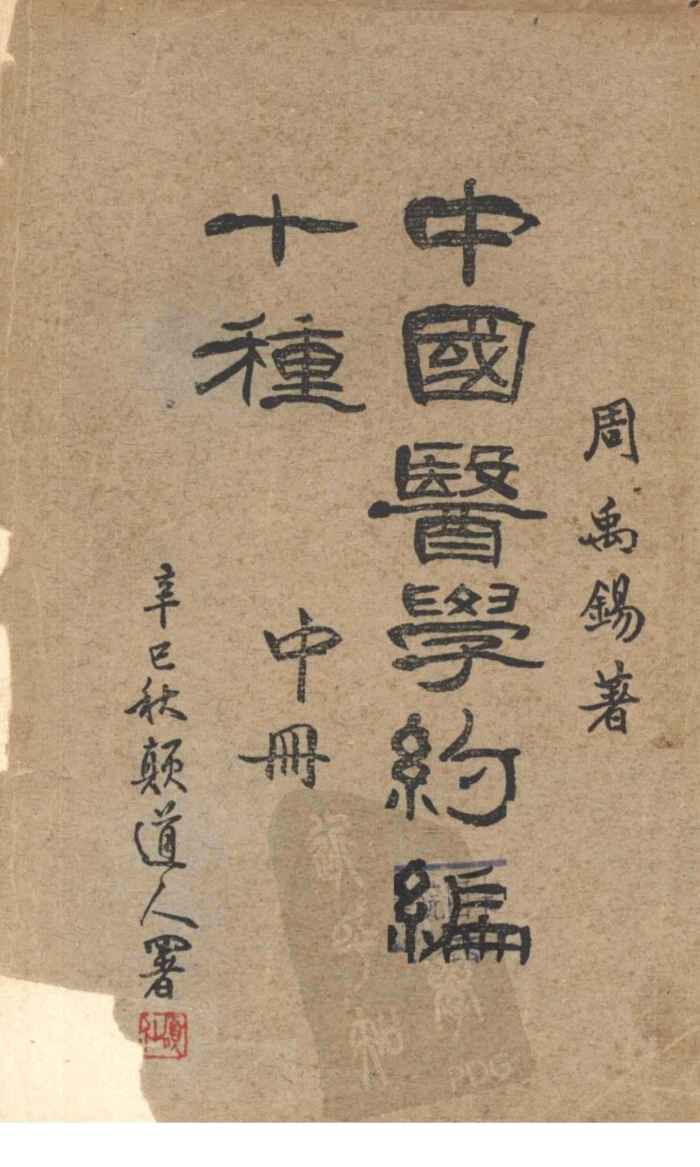 周禹錫著
中國醫學約編
十種
中冊
辛巳秋顛道人署
PDG